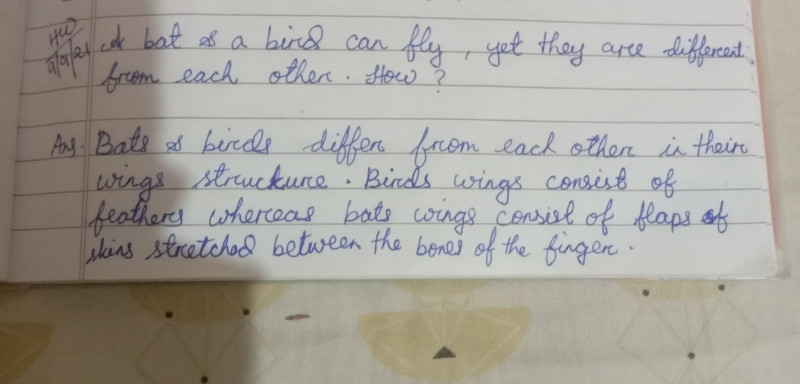 HW
9/9/21 A bat & a bird can fly, yet they are different
from each other. How?
Ans. Bats & birds differ from each other in their
wings struckure. Birds wings consist of
feathers whereas bats wings consist of flaps of
skins stretched between the bones of the finger.